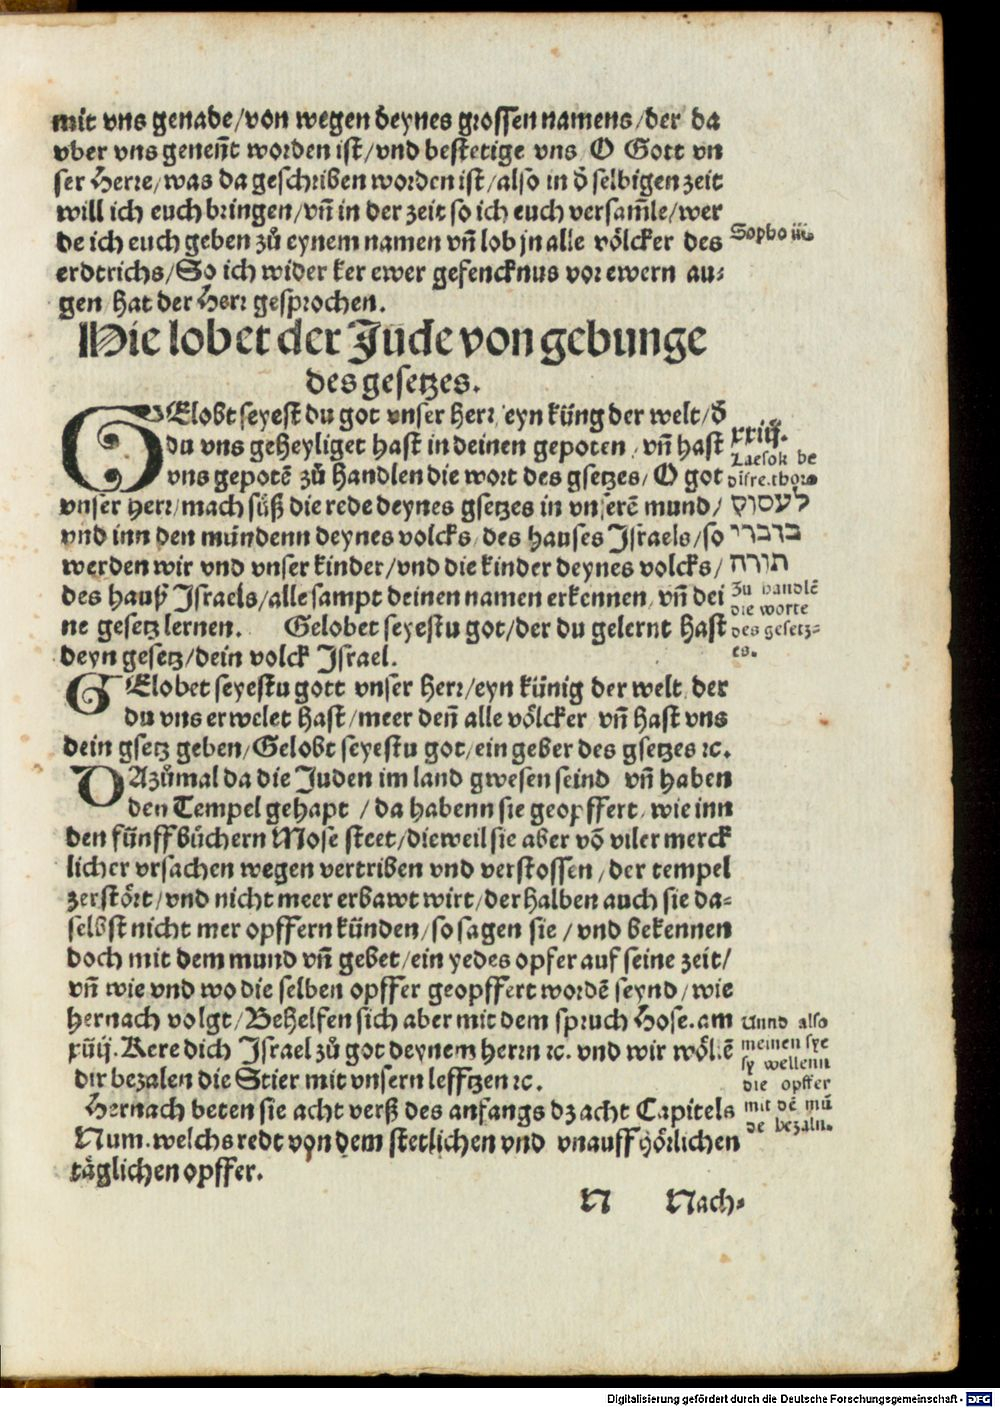 mit vns genade/von wegen deynes grossen namens/der da
vber vns geneñt worden ist/vnd bestetige vns O Gott vn
ser Herre/was da geschriben worden ist/also in ð selbigen zeit
will ich euch bringen/vñ in der zeit so ich euch versam̃le/wer
de ich euch geben zů eynem namen vñ lob jn alle völcker des
Sopho iij.
erdtrichs/So ich wider ker ewer gefencknus vor ewern au⸗
gen hat der Herr gesprochen.
Hie lobet der Jude von gebunge
des gesetzes.
GElobt seyest du got vnser Herr eyn küng der welt/ð
du vns geheyliget hast in deinen gepoten, vñ hast
vns gepotẽ zů handlen die wort des gsetzes/O got
vnser Herr/mach süß die rede deynes gsetzes in vnserẽ mund/
vnd inn den mündenn deynes volcks, des hauses Israels/so
werden wir vnd vnser kinder/vnd die kinder deynes volcks/
des hauß Israels/alle sampt deinen namen erkennen, vñ dei
ne gesetz lernen. Gelobet seyestu got/der du gelernt hast
deyn gesetz/dein volck Israel.
xxiij.
Laesok be
disre.thora
לעסוק
בדברי
תורה
Zu handlẽ
die worte
des gesetz⸗
es.
GElobet seyestu gott vnser Herr/eyn künig der welt, der
du vns erwelet hast/meer deñ alle völcker vñ hast vns
dein gsetz geben/Gelobt seyestu got/ein geber des gsetzes ꝛc.
DAzůmal da die Juden im land gwesen seind vñ haben
den Tempel gehapt /da habenn sie geopffert, wie inn
den fünff büchern Mose steet/dieweil sie aber võ viler merck
licher vrsachen wegen vertriben vnd verstossen/der tempel
zerstört/vnd nicht meer erbawt wirt/derhalben auch sie da⸗
selbst nicht mer opffern künden/so sagen sie/vnd bekennen
doch mit dem mund vñ gebet/ein yedes opfer auf seine zeit/
vñ wie vnd wo die selben opffer geopffert wordẽ seynd/wie
hernach volgt/Behelfen sich aber mit dem spruch Hose.am
xiiij.Kere dich Israel zů got deynem herrn ꝛc. vnd wir wöllẽ
dir bezalen die Stier mit vnsern lefftzen ꝛc.
Hernach beten sie acht verß des anfangs dz acht Capitels
Num.welchs redt von dem stetlichen vnd vnauffhörlichen
täglichen opffer.
Unnd also
meinen sye
sy wellenn
die opffer
mit dẽ mũ
de bezaln.
N Nach⸗
Digitalisierung gefördert durch die Deutsche Forschungsgemeinschaft - DFG